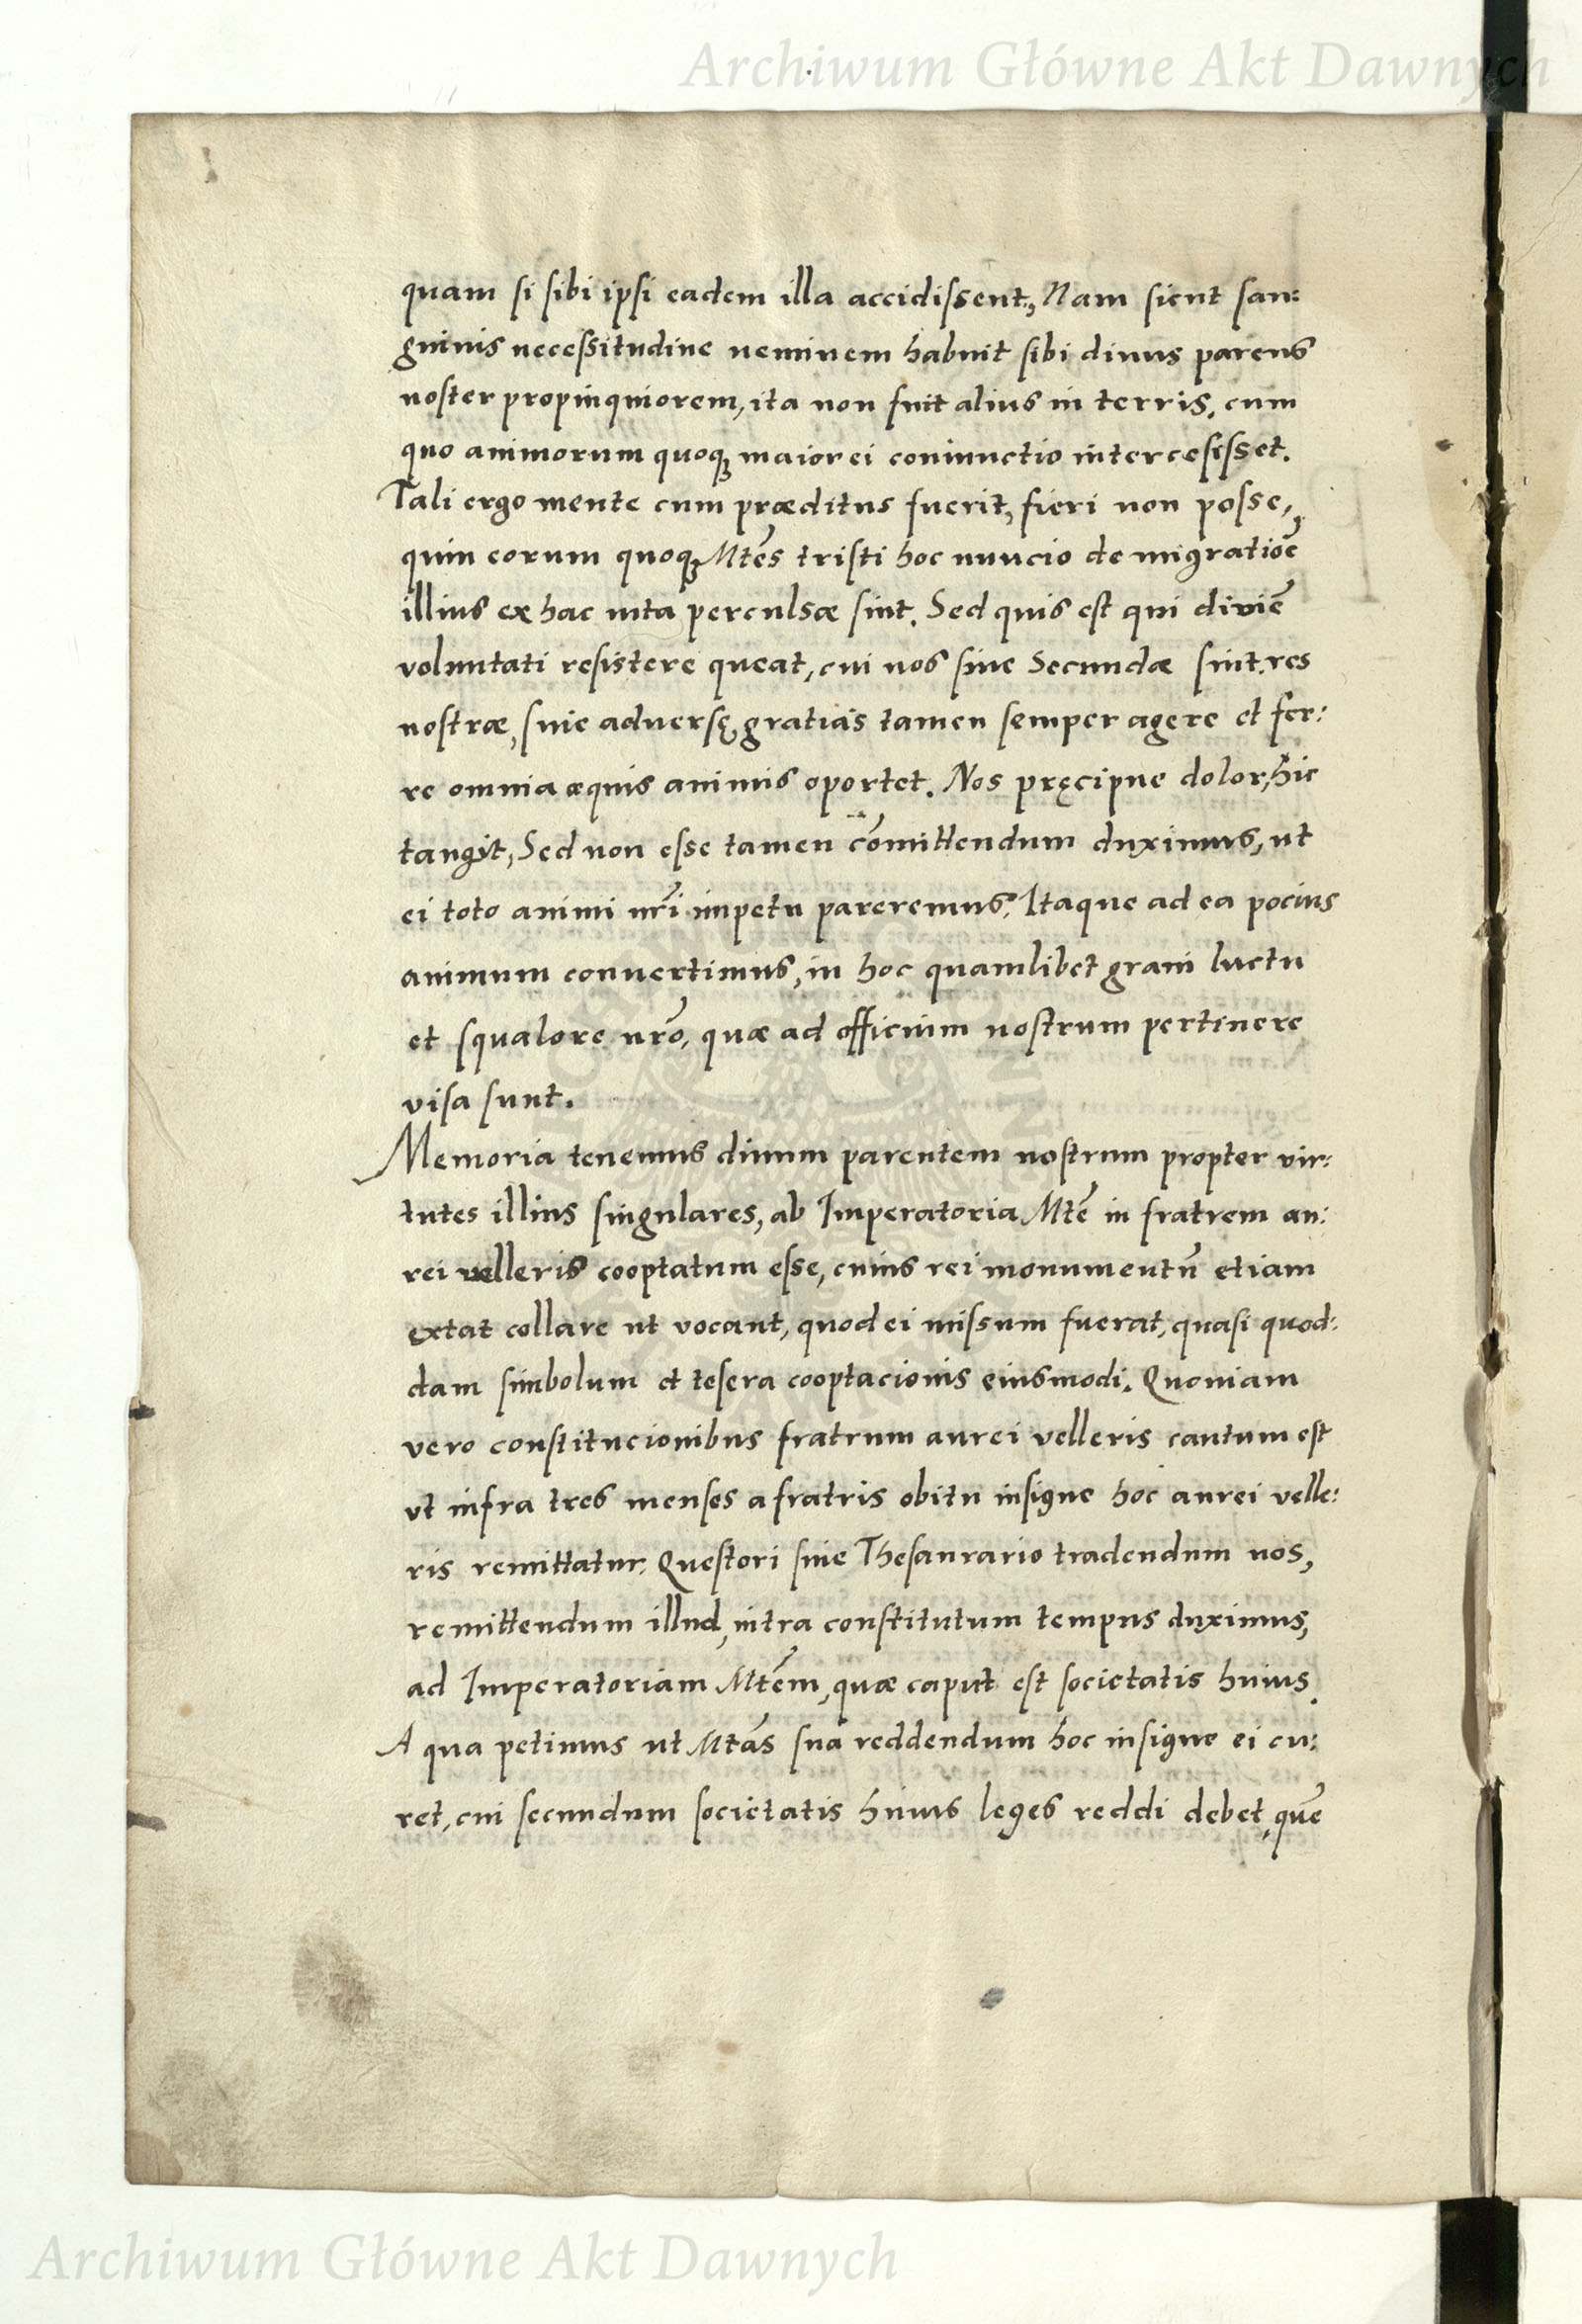 Archiwum Główne Akt Dawnych
quam si sibi ipsi eadem illa accidissent, Nam sicut san:
guinis necessitudine neminem habuit sibi divus parens
noster propinquiorem, ita non fuit alius in terris, cum
quo animorum quoqꝫ maior ei coniunctio intercesisset.
Tali ergo mente cum præditus fuerit, fieri non posse,
quin eorum quoqꝫ Mtēs tristi hoc nuncio de migratioē
illius ex hac uita perculsæ sint. Sed quis est qui diviē
voluntati resistere queat, cui nos siue Secundæ sint res
nostræ, siue aduersę gratias tamen semper agere et fer:
re omnia æquis animis oportet. Nos pręcipue dolor, hic
tangit, Sed non esse tamen cōmittendum duximus, ut
ei toto animi nr̄i impetu pareremus. Itaque ad ea pocius
animum conuertimus, in hoc quamlibet graui luctu
et squalore nr̄o, quæ ad officium nostrum pertinere
visa sunt.
Memoria tenemus diuum parentem nostrum propter vir:
tutes illius singulares, ab Imperatoria Mtē in fratrem au:
rei velleris cooptatum esse, cuius rei monumentū etiam
extat collare ut vocant, quod ei missum fuerat, quasi quod:
dam simbolum et tesera cooptacionis eiusmodi. Quoniam
vero constitucionibus fratrum aurei velleris cautum est
vt infra tres menses a fratris obitu insigne hoc aurei velle:
ris remittatur, Questori siue Thesaurario tradendum nos,
remittendum illud, intra constitutum tempus duximus,
ad Imperatoriam Mtēm, quæ caput est societatis huius.
A qua petimus ut Mtās sua reddendum hoc insigne ei cu:
ret, cui secundum societatis huius leges reddi debet, quē
Archiwum Główne Akt Dawnych